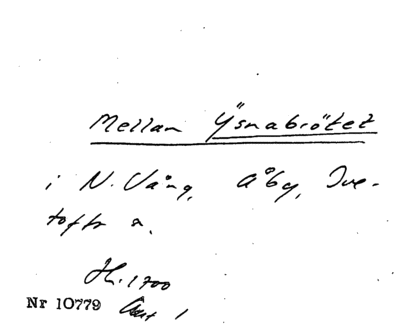 Mellan Ÿsnabrötet
i N. Vång, Åby, Ive-
tofta s.
Hs. 1700
Nr 10779 Akt 1